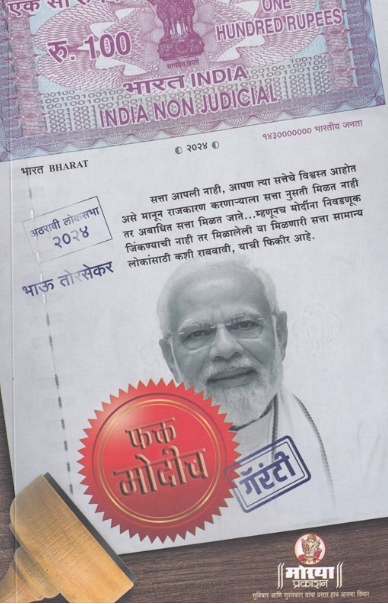 एक सौ रुपये
ONE
HUNDRED RUPEES
रु. 100
सत्यमेव जयते
भारत INDIA
INDIA NON JUDICIAL
१४३००००००० भारतीय जनता
२०२४
भारत BHARAT
सत्ता आपली नाही, आपण त्या सत्तेचे विश्वस्त आहोत
असे मानून राजकारण करणाऱ्याला सत्ता नुसती मिळत नाही
तर अबाधित सत्ता मिळत जाते...म्हणूनच मोदींना निवडणूक
जिंकण्याची नाही तर मिळालेली वा मिळणारी सत्ता सामान्य
लोकांसाठी कशी राबवावी, याची फिकीर आहे.
अठरावी लोकसभा
२०२४
भाऊ तोरसेकर
फक्त
मोदीच
गॅरंटी
मोरया
प्रकाशन
सुविचार आणि सुसंस्कार यांचा प्रसार हाच आमचा विचार